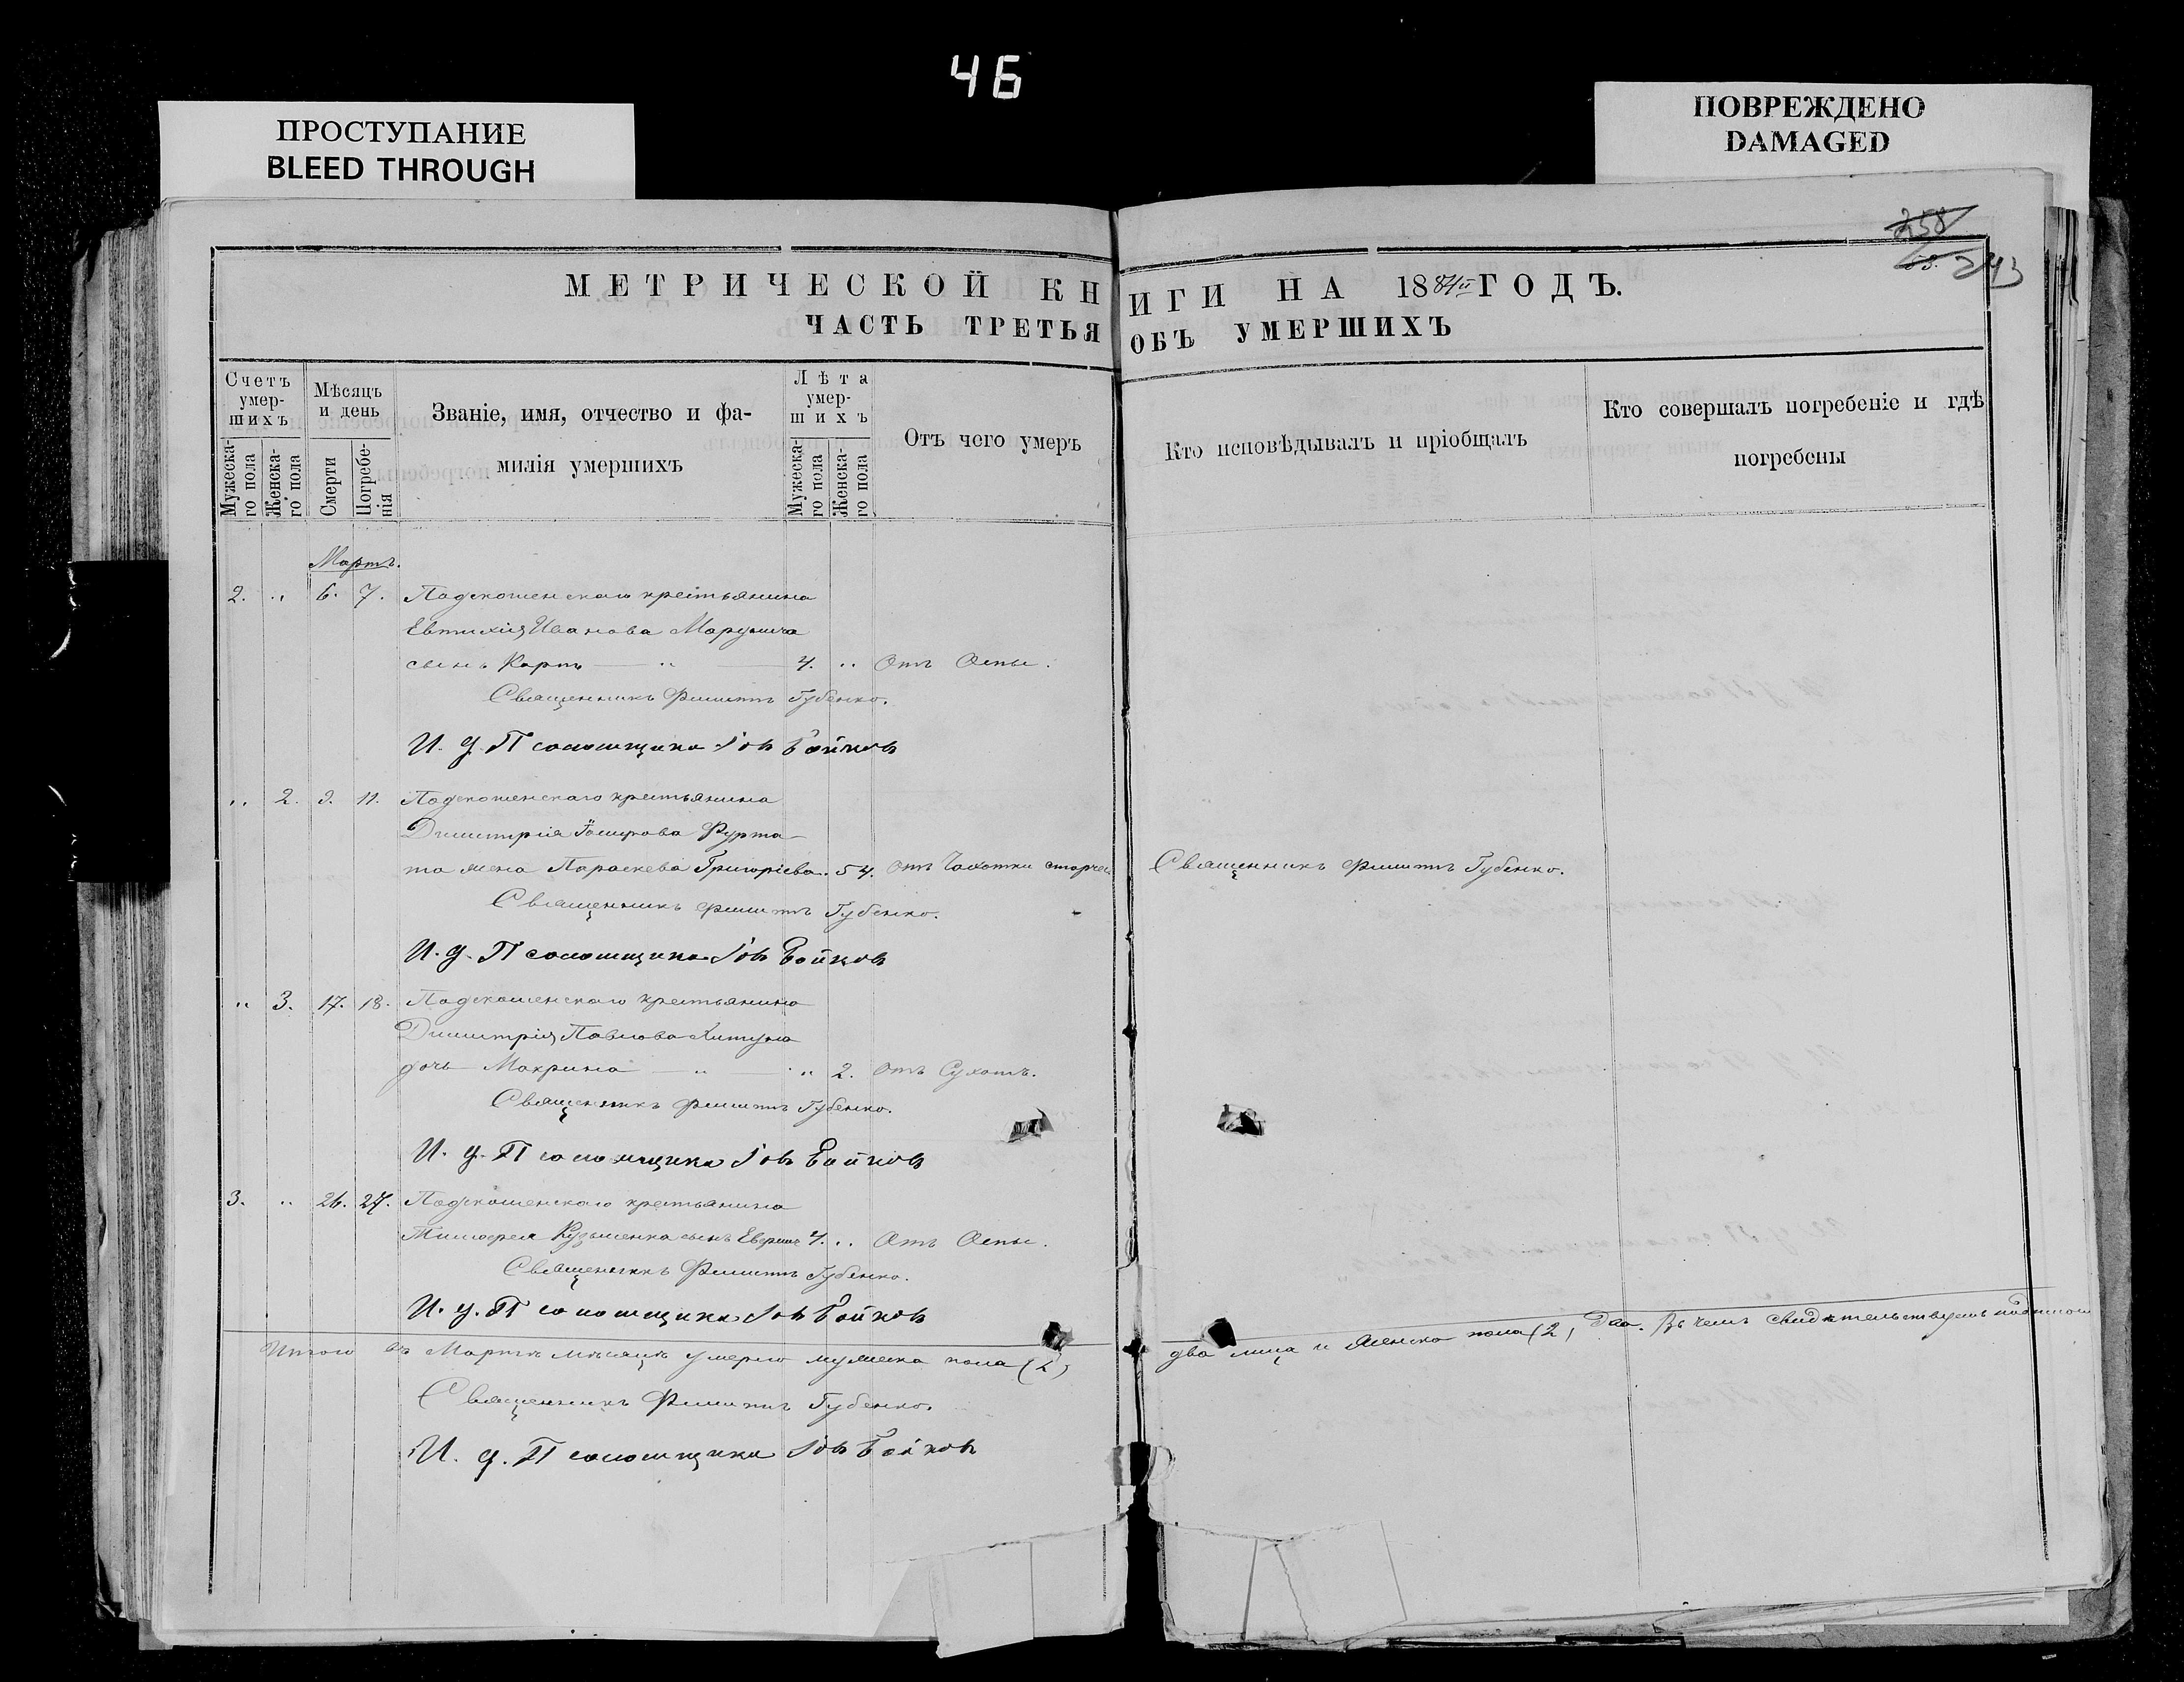 46
ПРОСТУПАНИЕ
BLEED THROUGH
ПОВРЕЖДЕНО
DAMAGED
258
243
МЕТРИЧЕСКОЙ КНИГИ НА 1884й ГОДЪ.
ЧАСТЬ ТРЕТЬЯ ОБЪ УМЕРШИХЪ
Счетъ умер-шихъ
Мужеска-го пола
Женска-го пола
Мѣсяцъ и день
Смерти
Погребе-нія
Званіе, имя, отчество и фа-
милія умершихъ
Лѣта умер-шихъ
Мужеска-го пола
Женска-го пола
Отъ чего умеръ
Кто исповѣдывалъ и пріобщалъ
Кто совершалъ погребеніе и гдѣ
погребены
Мартъ.
2. „ 6. 7. крестьянина
Евтихія Иванова
сынъ Карпъ — „ — 4. „ Отъ Оспы.
Священникъ Филиппъ Губенко.
И. д. Псаломщика Іовъ Бойковъ
„ 2. 9. 11. крестьянина
Димитрія
жена Параскева Григоріева. 54. Отъ Чахотки Священникъ Филиппъ Губенко.
Священникъ Филиппъ Губенко.
И. д. Псаломщика Іовъ Бойковъ
„ 3. 17. 18. крестьянина
Димитрія Павлова
дочь Макрина — „ — „ 2. Отъ Сухотъ.
Священникъ Филиппъ Губенко.
И. д. Псаломщика Іовъ Бойковъ
3. „ 26. 27. крестьянина
Тимофея Кузьменка сынъ 4. „ Отъ Оспы.
Священникъ Филиппъ Губенко.
И. д. Псаломщика Іовъ Бойковъ
Итого въ Мартѣ мѣсяцѣ умерло мужеска пола (2) два лица и женска пола (2) два. Въ чемъ свидѣтельствуемъ
Священникъ Филиппъ Губенко.
И. д. Псаломщика Іовъ Бойковъ